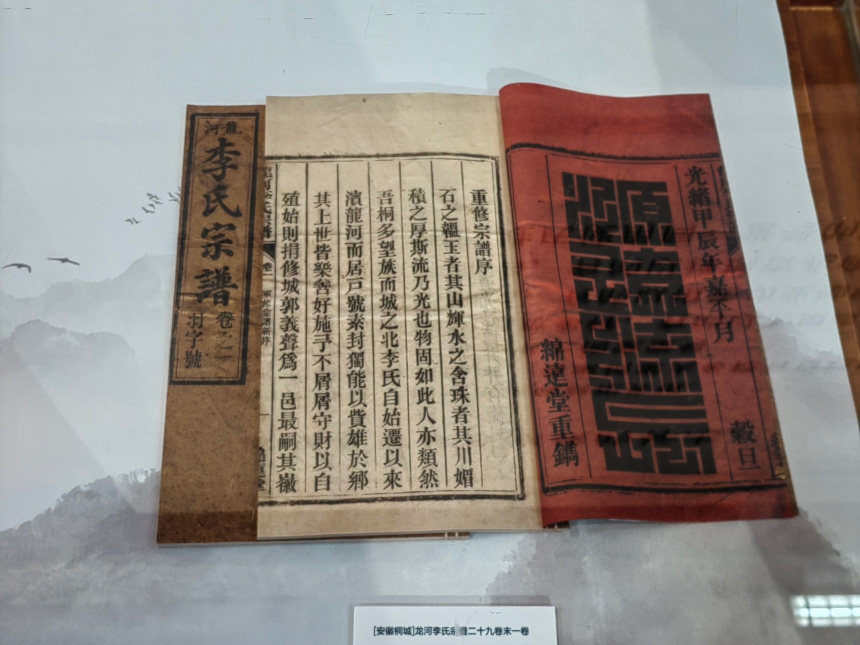 龍河
李氏宗譜
卷之一
羽字號
重修宗譜序
石之韞玉者其山輝水之含珠者其川媚
積之厚斯流乃光也物固如此人亦類然
吾桐多望族而城之北李氏自始遷以來
濱龍河而居戸號素封獨能以貲雄於鄉
其上世皆樂善好施予不屑屑守財以自
殖始則捐修城郭義聲爲一邑最嗣其嶽
光緒甲辰年
月
穀旦
綿遠堂重鐫
[安徽桐城]龙河李氏宗
二十九卷末一卷